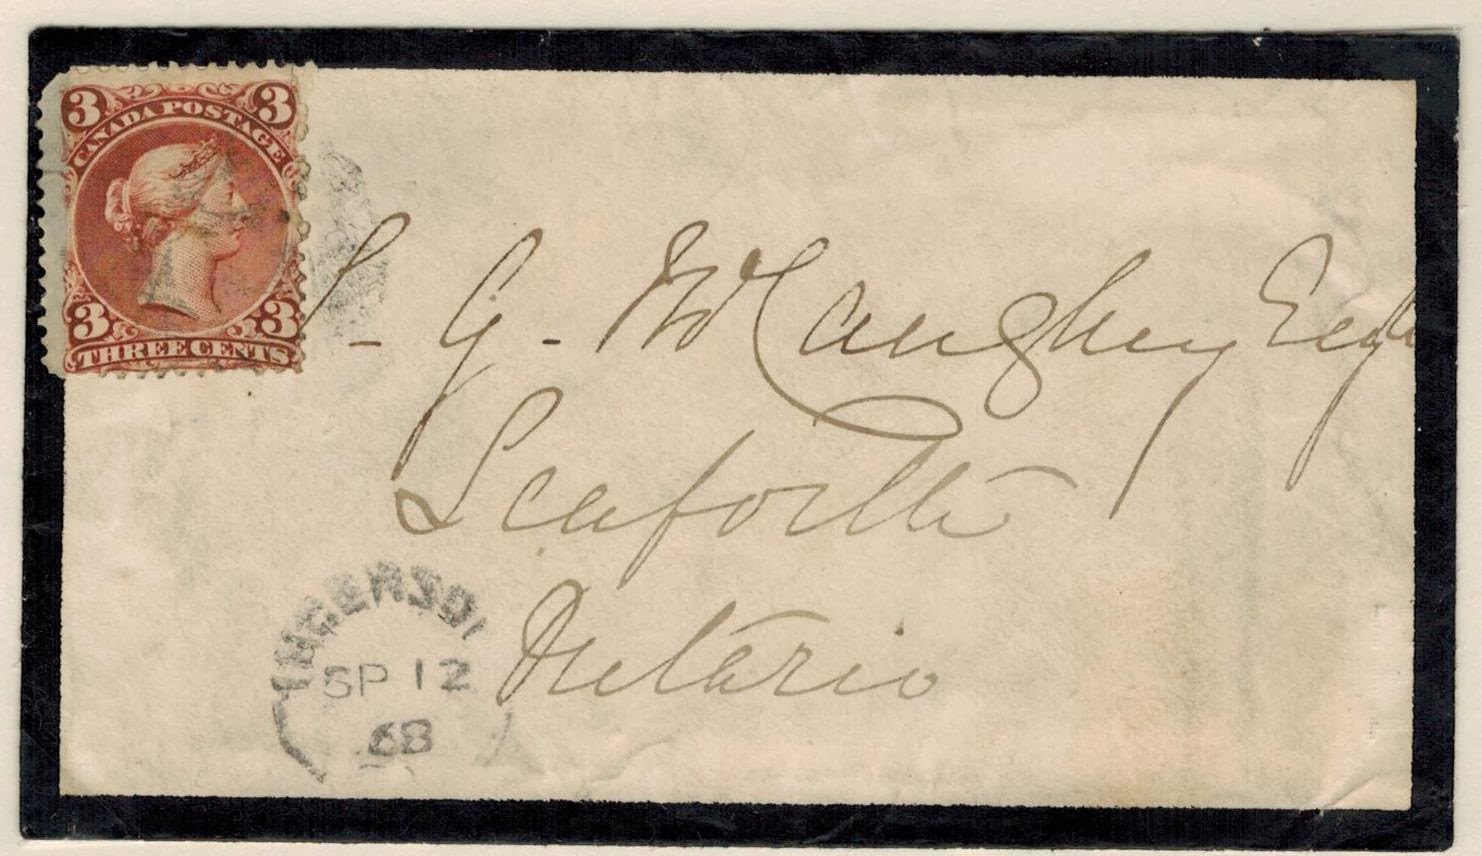 3 CANADA POSTAGE 3
3 3
THREE CENTS
S. G. McCaughey Esqr
Seaforth
Ontario
INGERSOL
SP 12
68